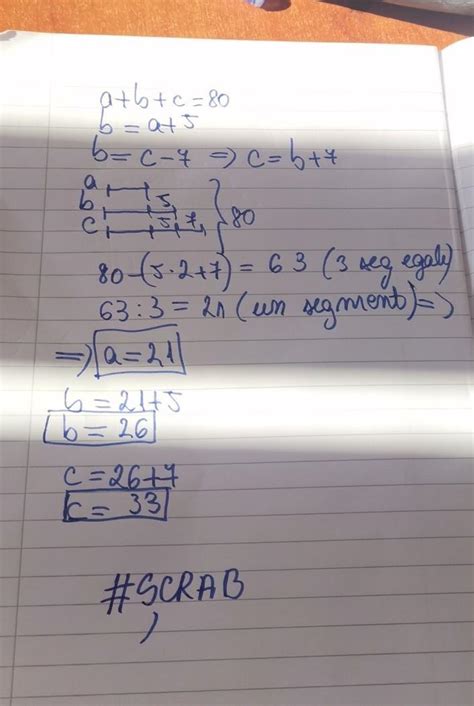 a+b+c=80
b=a+5
b=c-7 => c=b+7
a
b 5
c 5 7 } 80
80-(5·2+7)=63 (3 seg egale)
63:3=21 (un segment)=>
=> a=21
b=21+5
b=26
c=26+7
c=33
#SCRAB
,